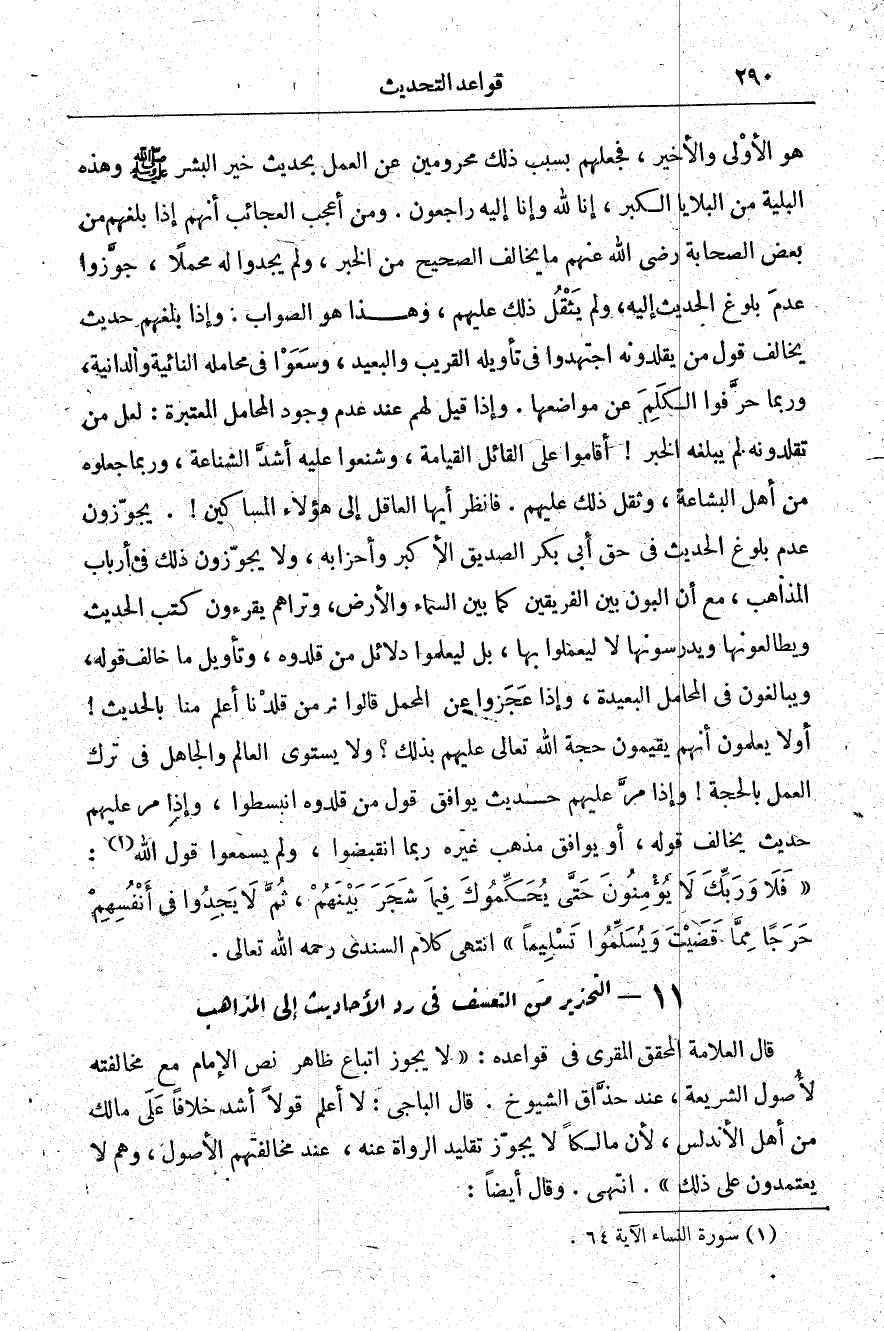 ٢٩٠
قواعد التحديث
هو الأوْلى والأخير ، فجعلهم بسبب ذلك محرومين عن العمل بحديث خير البشر ﷺ وهذه
البلية من البلايا الكبر ، إنا لله وإنا إليه راجعون . ومن أعجب العجائب أنهم إذا بلغهم من
بعض الصحابة رضى الله عنهم ما يخالف الصحيح من الخبر ، ولم يجدوا له محملًا ، جوَّزوا
عدمَ بلوغ الحديث إليه، ولم يَثْقُل ذلك عليهم ، وهــذا هو الصواب . وإذا بلغهم حديث
يخالف قول من يقلدونه اجتهدوا فى تأويله القريب والبعيد ، وسعَوْا فى محامله النائية والدانية،
وربما حرَّفوا الكَلِمَ عن مواضعها . وإذا قيل لهم عند عدم وجود المحامل المعتبرة : لعل من
تقلدونه لم يبلغه الخبر ! أقاموا على القائل القيامة ، وشنعوا عليه أشدَّ الشناعة ، وربما جعلوه
من أهل البشاعة ، وثقل ذلك عليهم . فانظر أيها العاقل إلى هؤلاء المساكين ! . يجوّزون
عدم بلوغ الحديث فى حق أبى بكر الصديق الأكبر وأحزابه ، ولا يجوّزون ذلك فى أرباب
المذاهب ، مع أن البون بين الفريقين كما بين السماء والأرض، وتراهم يقرءون كتب الحديث
ويطالعونها ويدرسونها لا ليعملوا بها ، بل ليعلموا دلائل من قلدوه ، وتأويل ما خالف قوله،
ويبالغون فى المحامل البعيدة ، وإذا عَجَزوا عن المحمل قالوا : من قلدْنا أعلم منا بالحديث !
أولا يعلمون أنهم يقيمون حجة الله تعالى عليهم بذلك ؟ ولا يستوى العالم والجاهل فى ترك
العمل بالحجة ! وإذا مرَّ عليهم حــديث يوافق قول من قلدوه انبسطوا ، وإذا مر عليهم
حديث يخالف قوله ، أو يوافق مذهب غيره ربما انقبضوا ، ولم يسمعوا قول الله(١) :
« فَلَا وَرَبِّكَ لَا يُؤْمِنُونَ حَتَّى يُحَكِّمُوكَ فِيمَا شَجَرَ بَيْنَهُمْ ، ثُمَّ لَا يَجِدُوا فِى أَنْفُسِهِمْ
حَرَجًا مِمَّا قَضَيْتَ وَيُسَلِّمُوا تَسْلِيماً » انتهى كلام السندى رحمه الله تعالى .
١١ – التحذير من التعسف فى رد الأحاديث إلى المذاهب
قال العلامة المحقق المقرى فى قواعده : « لا يجوز اتباع ظاهر نص الإمام مع مخالفته
لأصول الشريعة ، عند حذَّاق الشيوخ . قال الباجى : لا أعلم قولاً أشد خلافاً عَلَى مالك
من أهل الأندلس ، لأن مالكاً لا يجوّز تقليد الرواة عنه ، عند مخالفتهم الأصول ، وهم لا
يعتمدون على ذلك » . انتهى . وقال أيضاً :
(١) سورة النساء الآية ٦٤ .